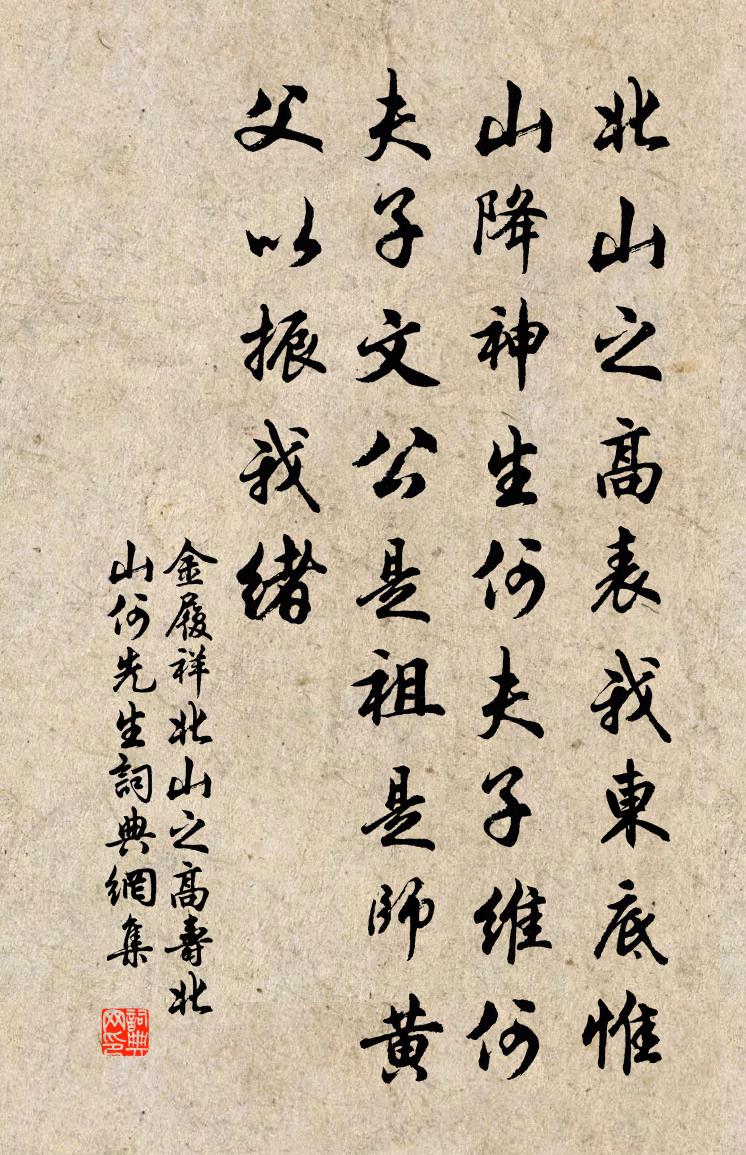 北山之高表我東底惟
山降神生何夫子維何
夫子文公是祖是師黃
父以振我緒
金履祥北山之高壽北
山何先生詞典網集
詞典网印